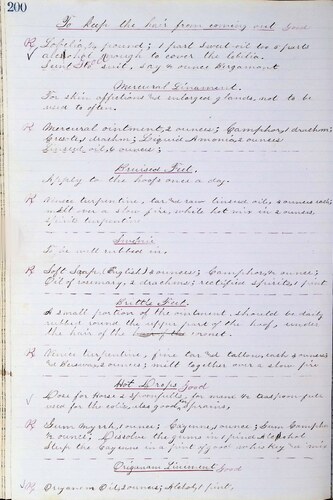 200
To keep the hair from coming out Good
℞ Lobelia, ½ pound; 1 part sweet oil to 2 parts
alcohol enough to cover the lobelia.
suit, say ½ ounce Bergamont
Mercurial Linament.
For skin affections & enlarged glands, not to be
used to often.
℞ Mercurial ointment, 2 ounces; Camphor, 1 drachm;
1 drachm; Liquid Amonia 2 ounces
oil, 6 ounces;
Bruised Feet.
Apply to the hoofs once a day.
℞ Venice turpentine, tar & raw linseed oil, 2 ounces each;
melt on a slow fire, while hot mix in 2 ounces
spirits turpentine
Sweenie
To be well rubbed in.
℞ Soft Soap (English) 2 ounces; Camphor, ½ ounce;
Oil of rosemary, 2 drachms; rectified spirits, 1 pint
Brittle Feet.
A small portion of the ointment, should be daily
rubbed round the upper part of the hoof, under
the hair of the coronet.
℞ Venice turpentine, pine tar & tallow, each 3 ounces
& Rosin 2 ounces; melt together over a slow fire
Hot Drops Good
Dose for Horse 2 spoonfulls, for man ½ teaspoonful
used for the colic, also good for Sprains,
℞ Gum Myrrh 1 ounce; Cayenne 1 ounce; Gum Camphor
½ ounce. Dissolve the gums in 1 pint Alcohol
Steep the Cayenne in a pint of good whiskey & mix
Origanum Linement Good
℞ Origanum Oil 2 ounces; Alcohol 1 pint,